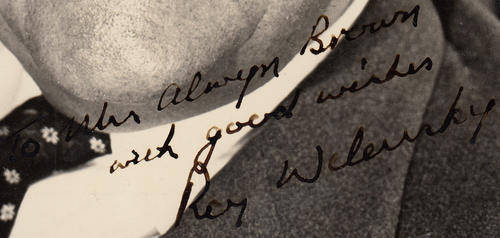 To Mrs Alwyn Brown
with good wishes
Roy Welensky